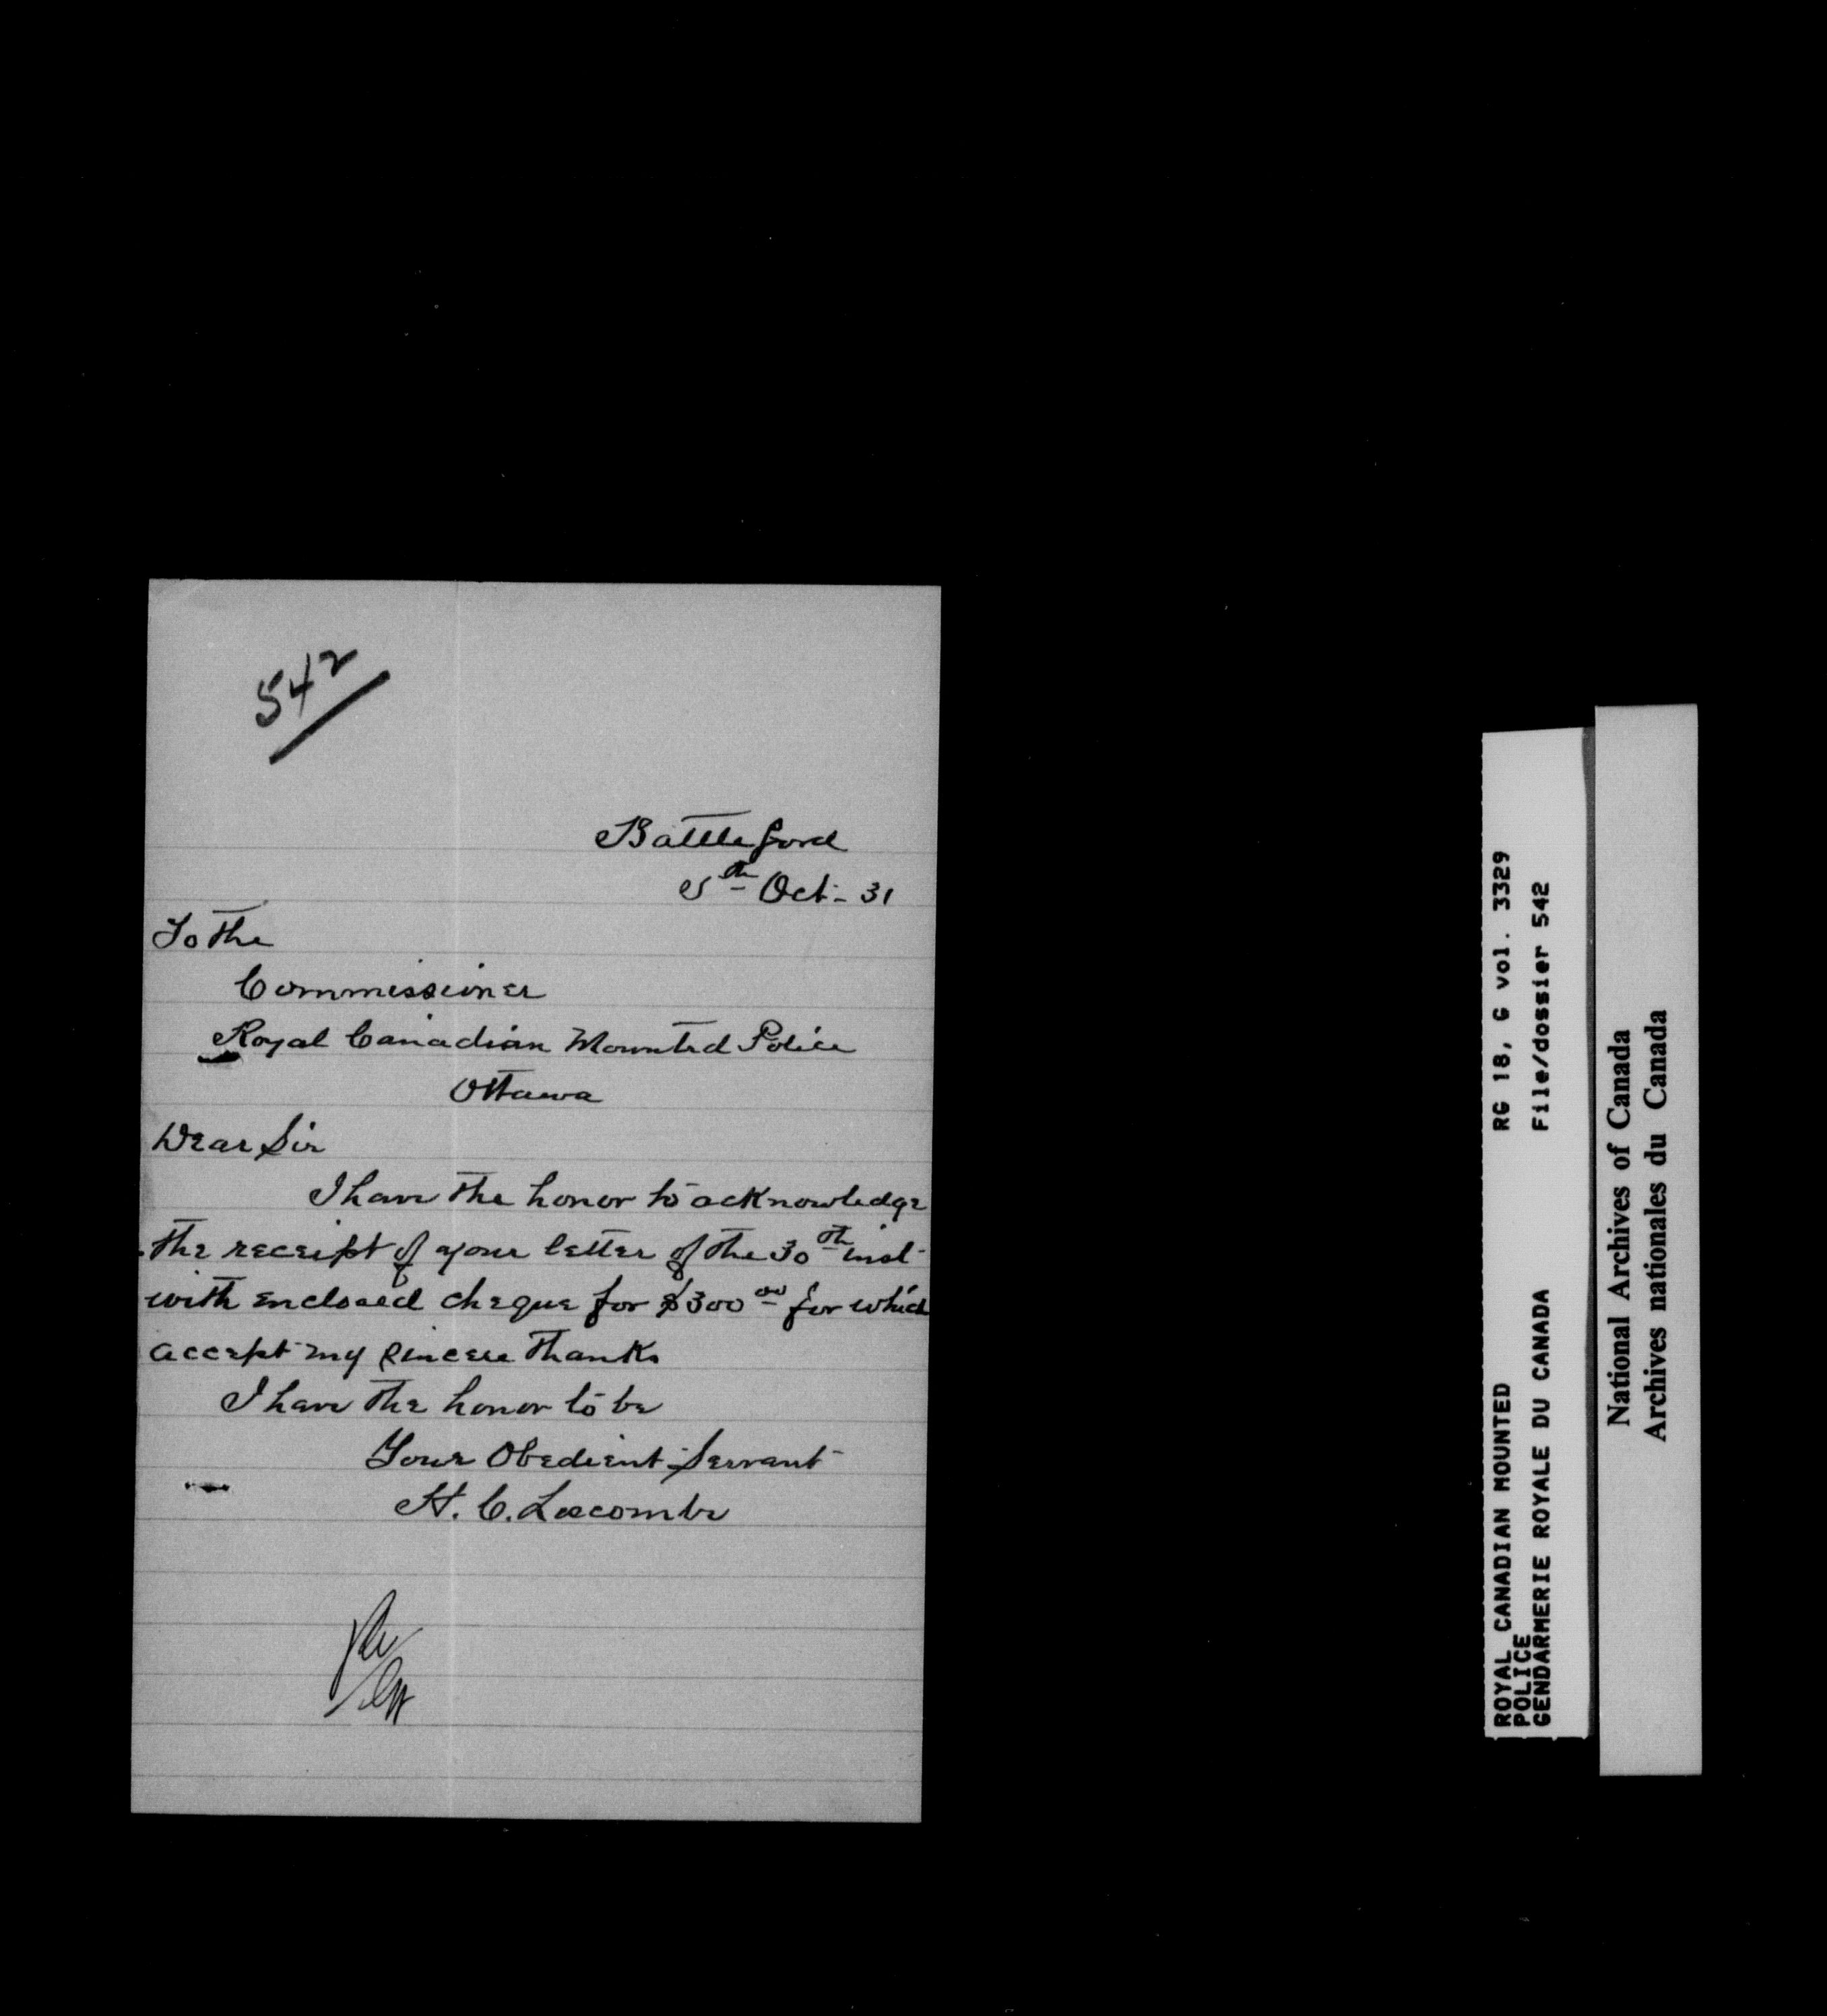 542
Battleford
5th Oct- 31
To the
Commissioner
Royal Canadian Mounted Police
Ottawa
Dear Sir
I have the honor to acknowledge
the receipt of your letter of the 30th inst-
with enclosed cheque for $300 00 for which
accept my sincere thanks
I have the honor to be
Your Obedient Servant
H. C.
ROYAL CANADIAN MOUNTED
POLICE
GENDARMERIE ROYALE DU CANADA
RG 18, G vol. 3329
File/dossier 542
National Archives of Canada
Archives nationales du Canada